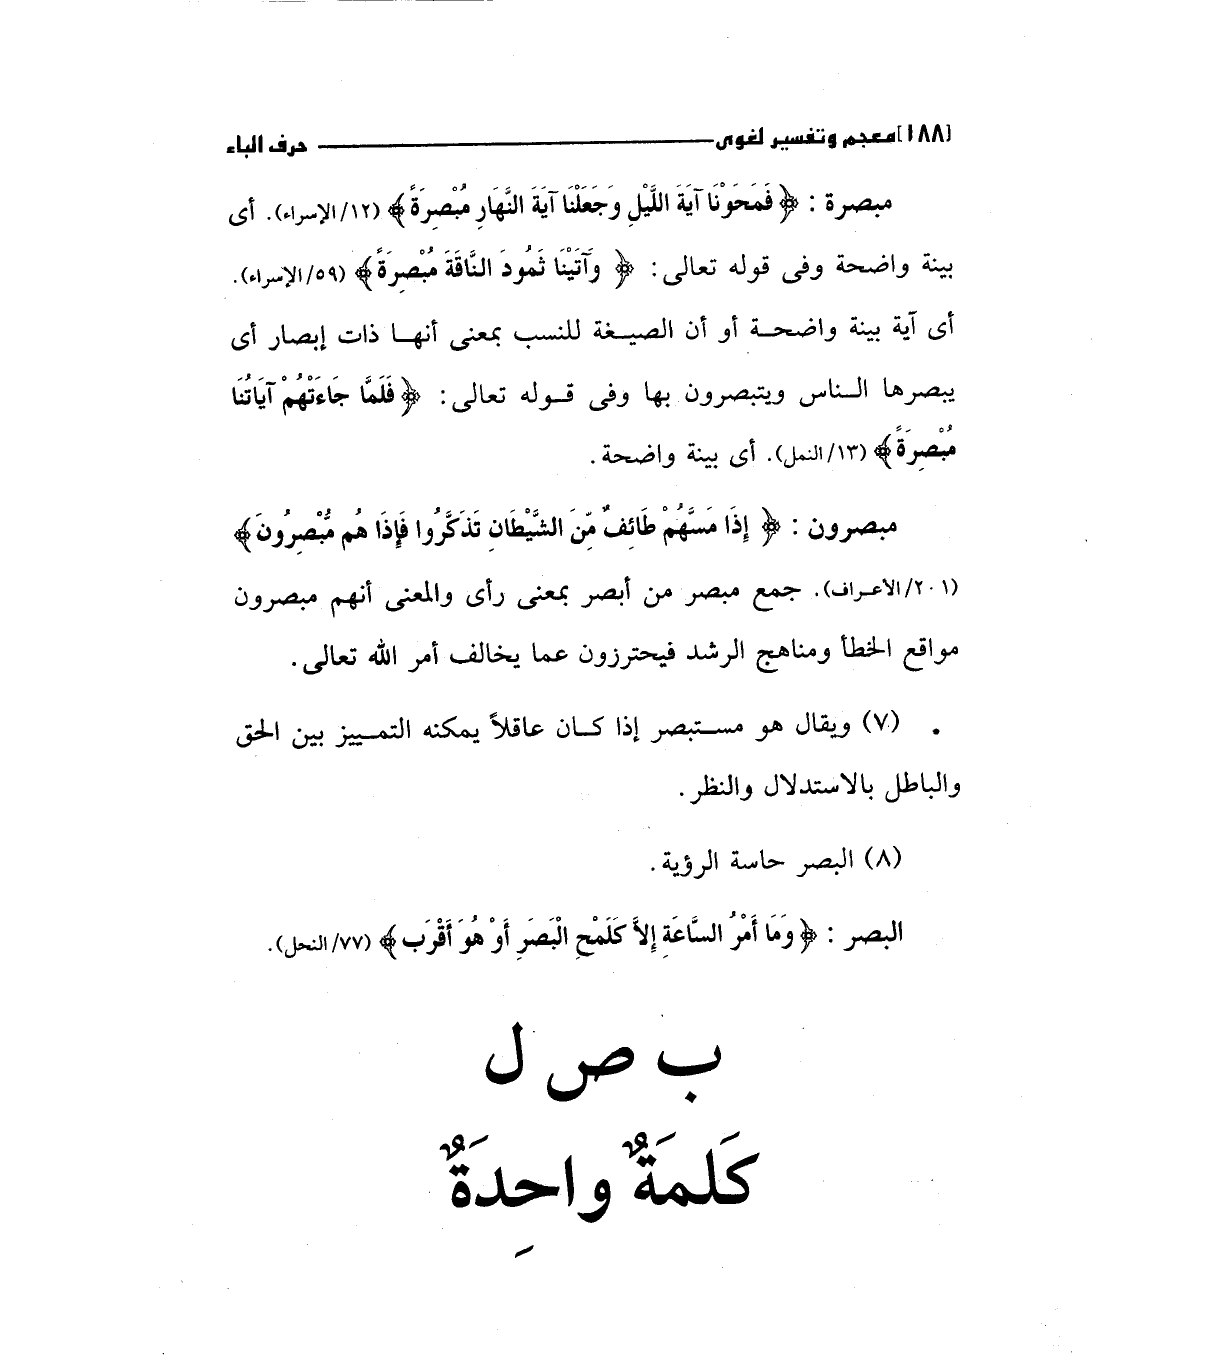 [١٨٨] معجم وتفسير لغوى حرف الباء
مبصرة : ﴿ فَمَحَوْنَا آيَةَ اللَّيْلِ وَجَعَلْنَا آيَةَ النَّهَارِ مُبْصِرَةً ﴾ (١٢/ الإسراء). أى
بينة واضحة وفى قوله تعالى : ﴿ وَآتَيْنَا ثَمُودَ النَّاقَةَ مُبْصِرَةً ﴾ (٥٩/ الإسراء).
أى آية بينة واضحـة أو أن الصيـغة للنسب بمعنى أنهـا ذات إبصار أى
يبصرها الـناس ويتبصرون بها وفى قـوله تعالى : ﴿ فَلَمَّا جَاءَتْهُمْ آيَاتُنَا
مُبْصِرَةً ﴾ (١٣/ النمل). أى بينة واضحة .
مبصرون : ﴿ إِذَا مَسَّهُمْ طَائِفٌ مِّنَ الشَّيْطَانِ تَذَكَّرُوا فَإِذَا هُم مُّبْصِرُونَ ﴾
(٢٠١/ الاعـراف). جمع مبصر من أبصر بمعنى رأى والمعنى أنهم مبصرون
مواقع الخطأ ومناهج الرشد فيحترزون عما يخالف أمر الله تعالى .
. (٧) ويقال هو مسـتبصر إذا كـان عاقلاً يمكنه التمـييز بين الحق
والباطل بالاستدلال والنظر .
(٨) البصر حاسة الرؤية .
البصر : ﴿ وَمَا أَمْرُ السَّاعَةِ إِلاَّ كَلَمْحِ الْبَصَرِ أَوْ هُوَ أَقْرَب ﴾ (٧٧/ النحل).
ب ص ل
كَلمَةٌ واحِدَةٌ